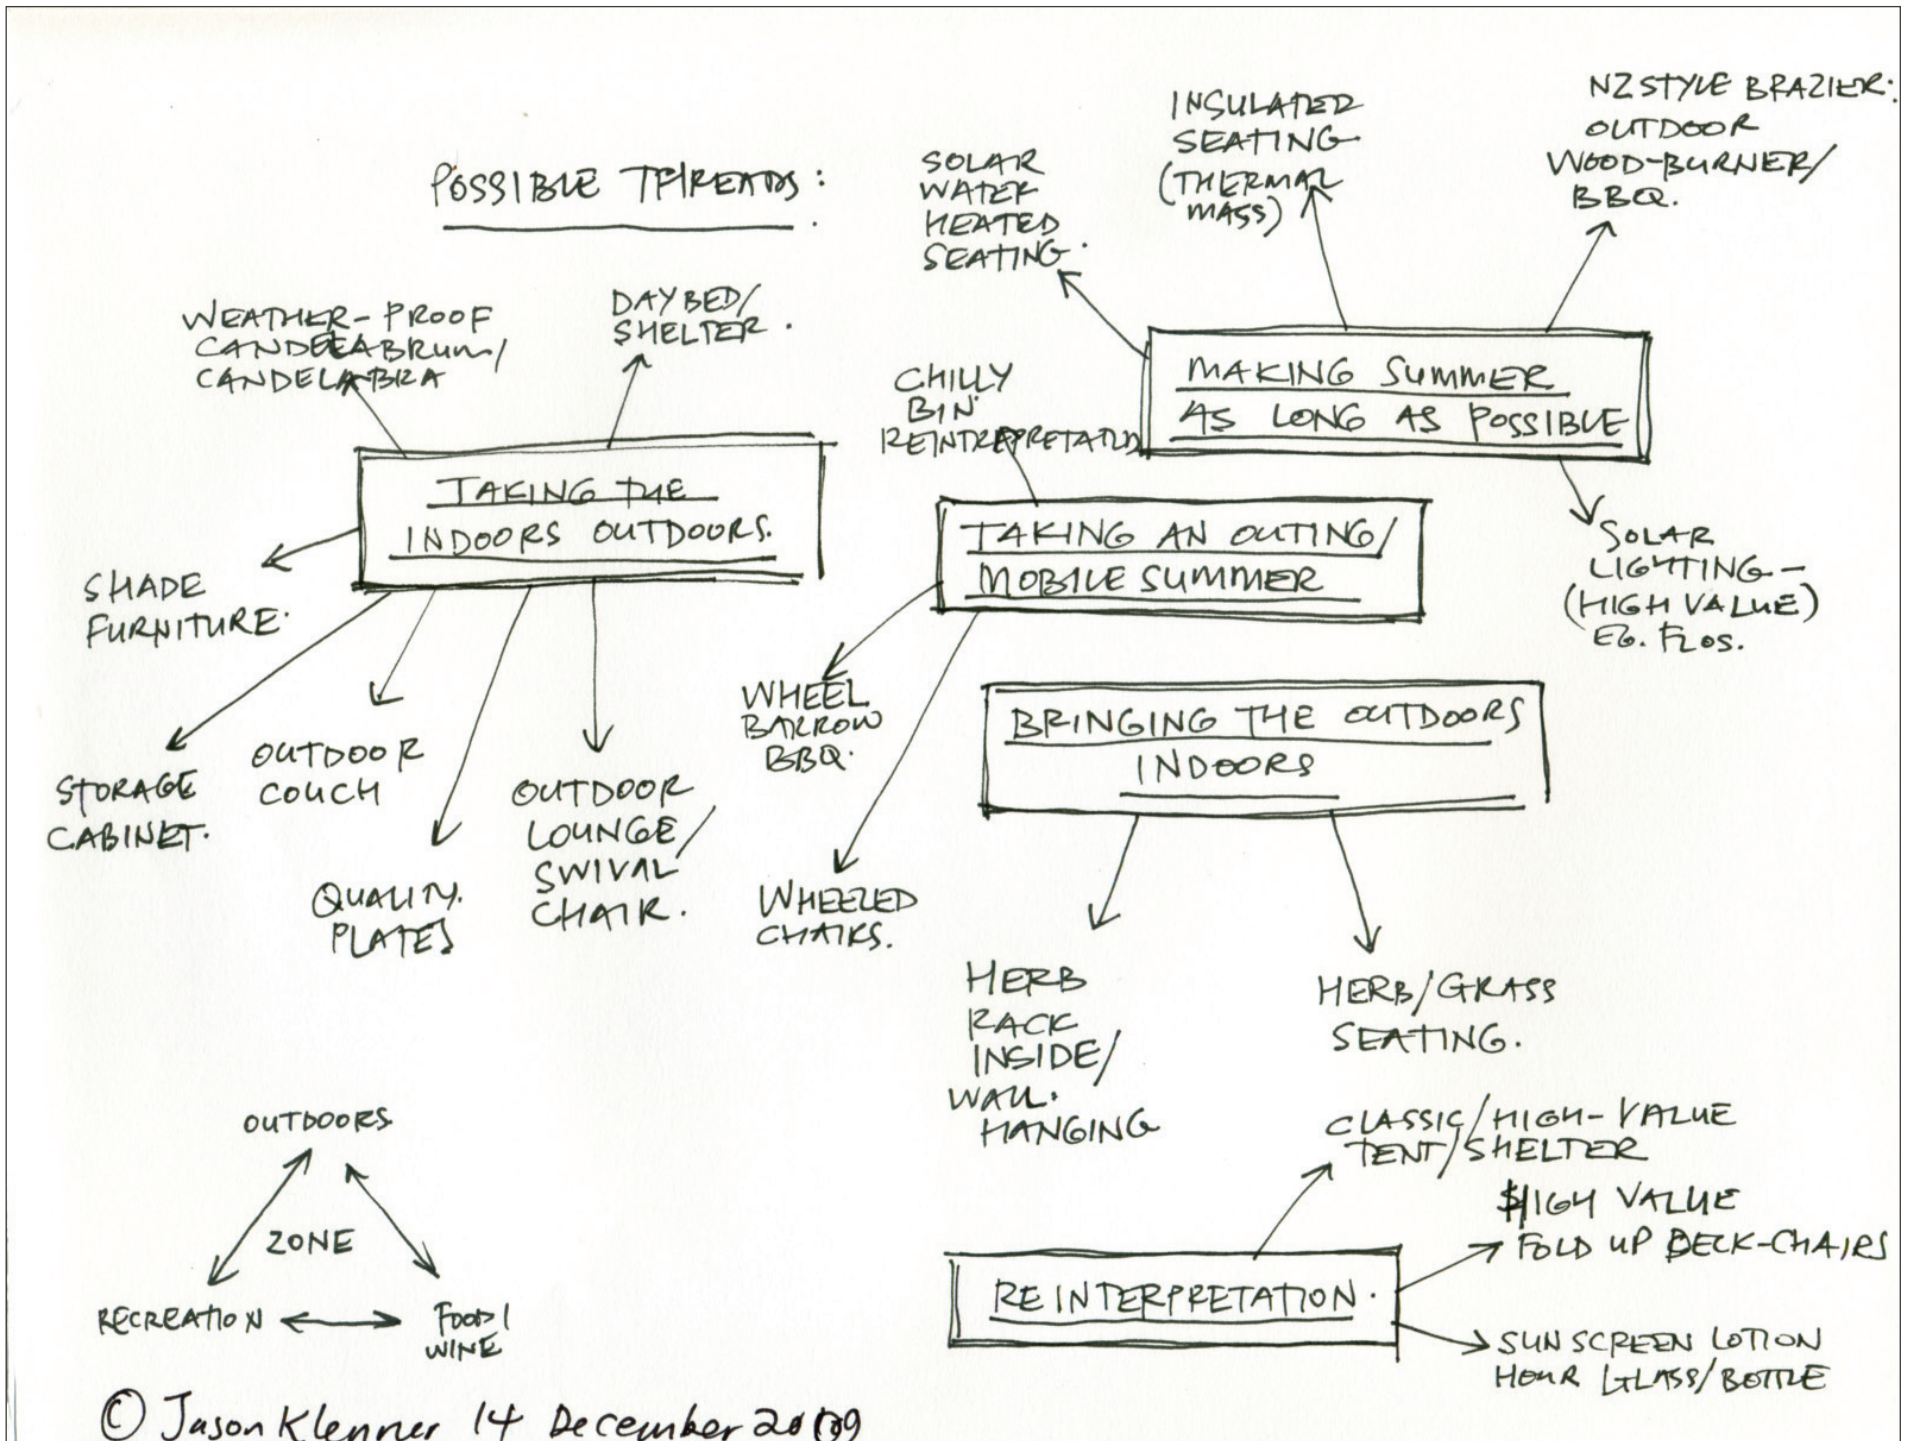 POSSIBLE THREADS:
WEATHER-PROOF
CANDELABRUM/
CANDELABRA
DAYBED/
SHELTER.
TAKING THE
INDOORS OUTDOORS.
SHADE
FURNITURE.
STORAGE
CABINET.
OUTDOOR
COUCH
QUALITY.
PLATES
OUTDOOR
LOUNGE/
SWIVAL
CHAIR.
SOLAR
WATER
HEATED
SEATING.
INSULATED
SEATING
(THERMAL
MASS)
NZ STYLE BRAZIER:
OUTDOOR
WOOD-BURNER/
BBQ.
MAKING SUMMER
AS LONG AS POSSIBLE
SOLAR
LIGHTING -
(HIGH VALUE)
EG. FLOS.
CHILLY
BIN
TAKING AN OUTING/
MOBILE SUMMER
WHEEL
BARROW
BBQ.
WHEELED
CHAIRS.
BRINGING THE OUTDOORS
INDOORS
HERB
RACK
INSIDE/
WALL.
HANGING
HERB/GRASS
SEATING.
OUTDOORS
ZONE
RECREATION
FOOD/
WINE
CLASSIC/HIGH-VALUE
TENT/SHELTER
HIGH VALUE
FOLD UP DECK-CHAIRS
REINTERPRETATION.
SUNSCREEN LOTION
HOUR GLASS/BOTTLE
© Jason Klenner 14 December